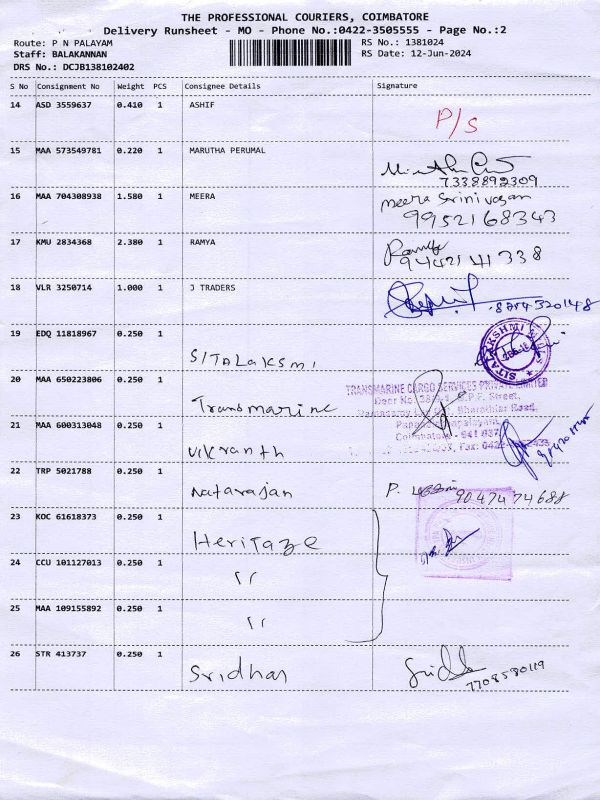 THE PROFESSIONAL COURIERS, COIMBATORE
Delivery Runsheet - MO - Phone No.:0422-3505555 - Page No.:2
Route: P N PALAYAM RS No.: 1381024
Staff: BALAKANNAN RS Date: 12-Jun-2024
DRS No.: DCJB138102402
S No Consignment No Weight PCS Consignee Details Signature
14 ASD 3559637 0.410 1 ASHIF P/S
15 MAA 573549781 0.220 1 MARUTHA PERUMAL
7338892309
16 MAA 704308938 1.580 1 MEERA meera Srinivasan
9952168343
17 KMU 2834368 2.380 1 RAMYA Ramya
9442141338
18 VLR 3250714 1.000 1 J TRADERS 8254320148
19 EDQ 11818967 0.250 1 SITALAKSMI SITALAKSHMI
20 MAA 650223806 0.250 1 Transmarine TRANSMARINE CARGO SERVICES PRIVATE LIMITED
Street,
Bharathiar Road,
21 MAA 600313048 0.250 1 Vikranth Coimbatore - 641 037
Fax: 0422
22 TRP 5021788 0.250 1 Natarajan P. 9047474688
23 KOC 61618373 0.250 1 Heritage
24 CCU 101127013 0.250 1 "
25 MAA 109155892 0.250 1 "
26 STR 413737 0.250 1 Sridhar Sridh
7708580119